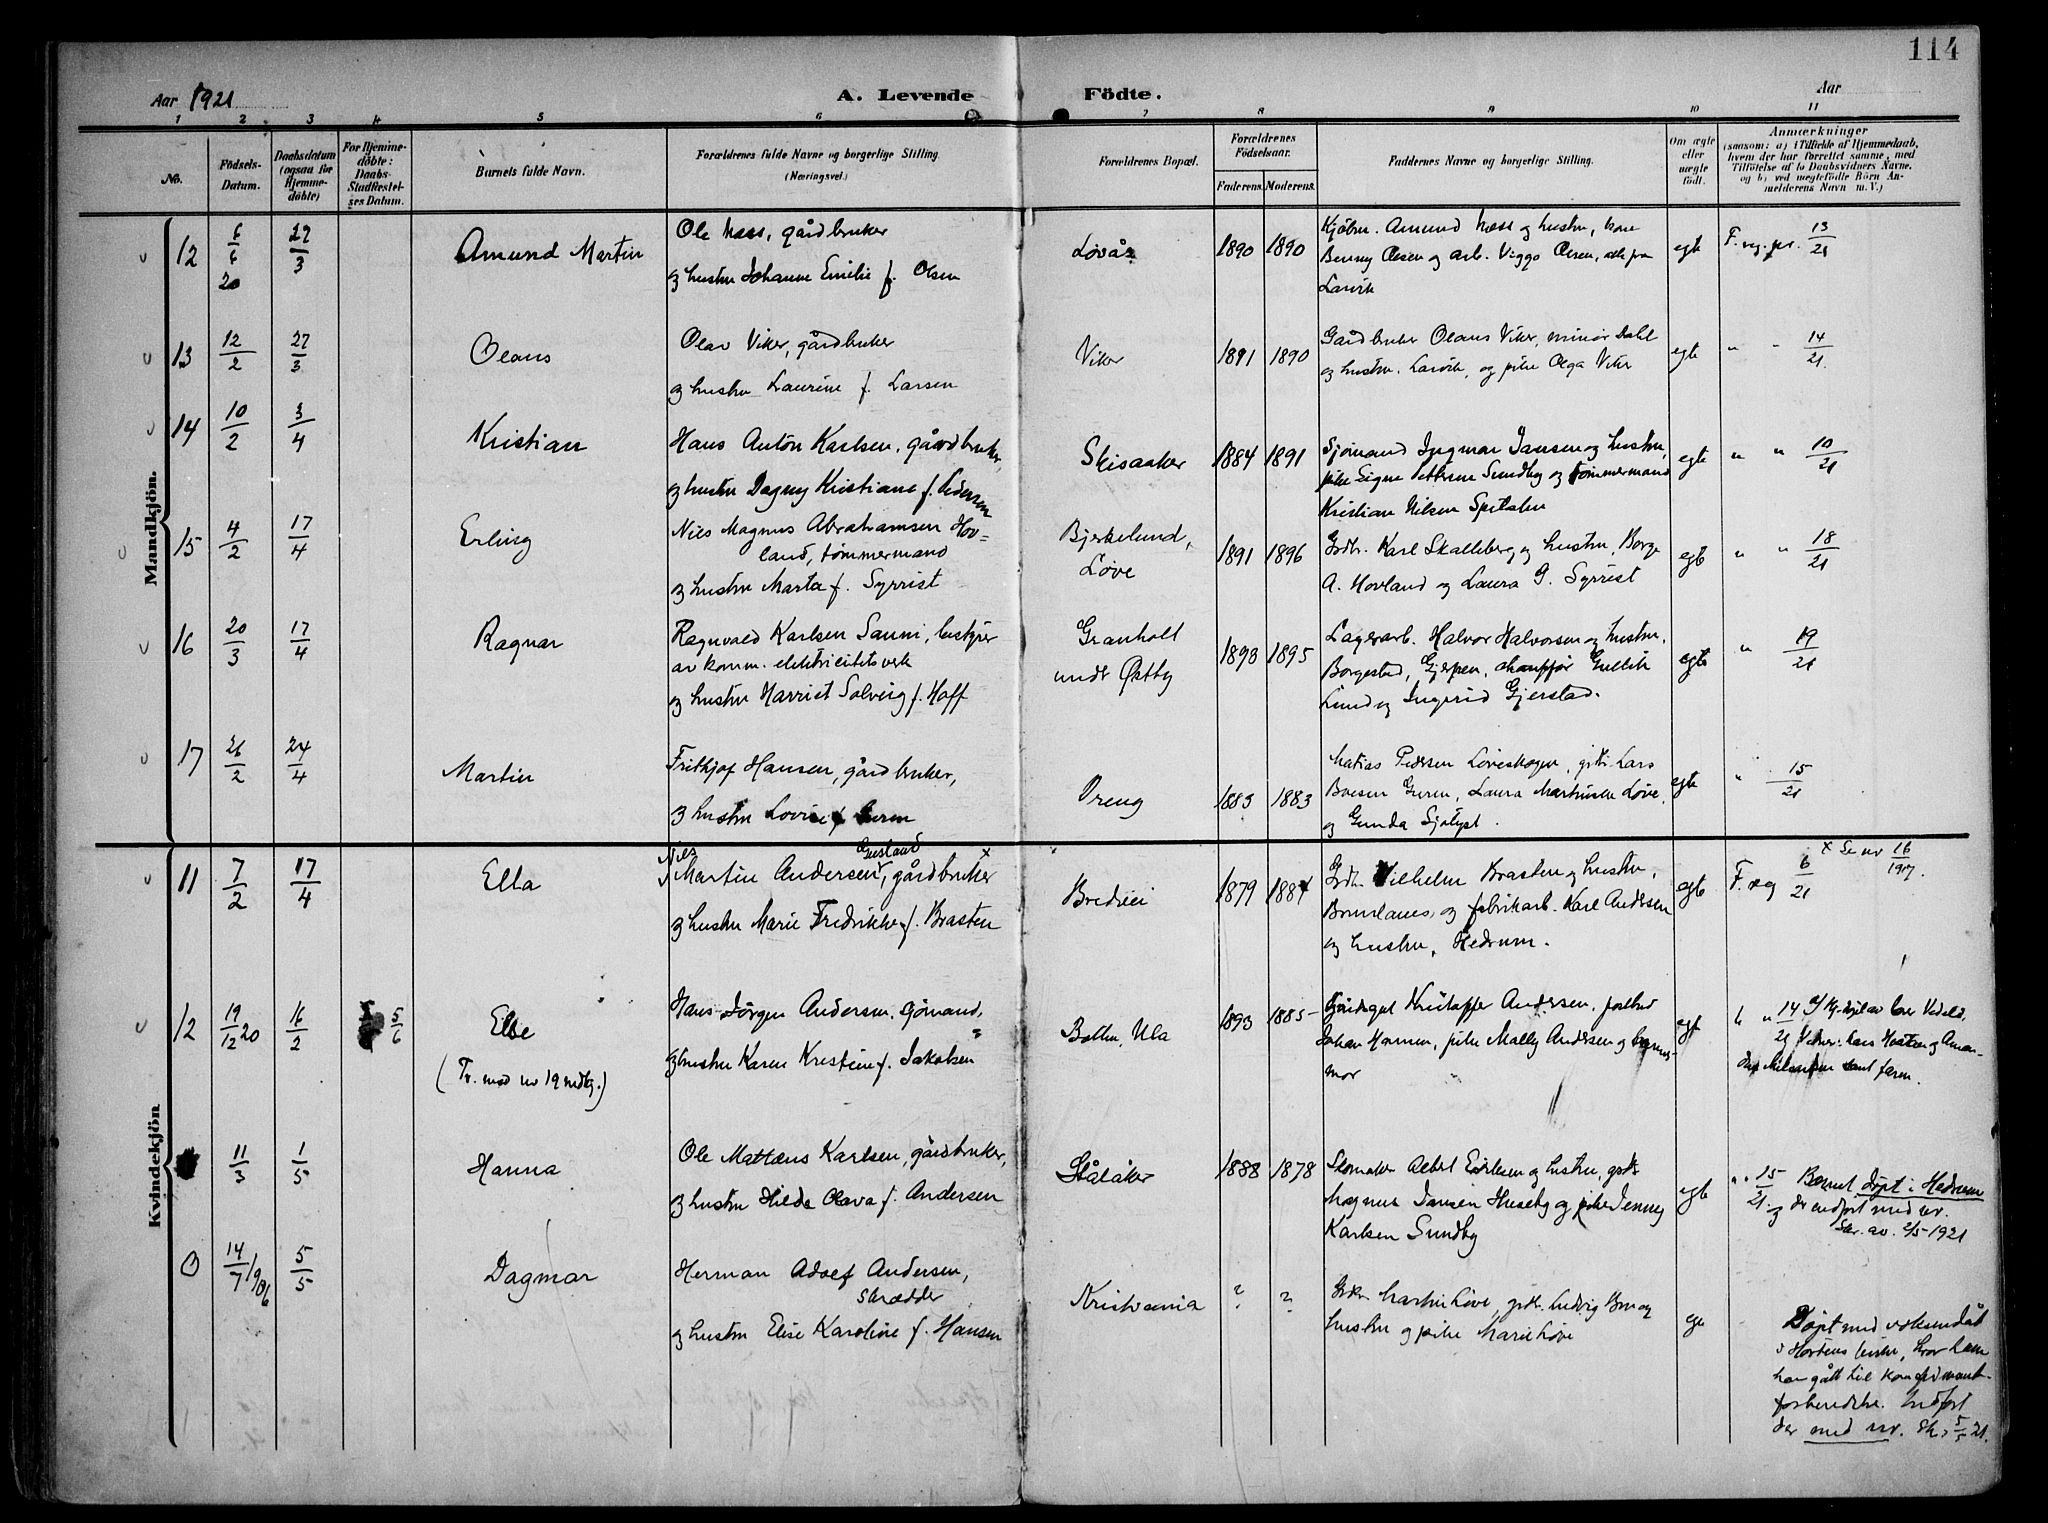 114
Aar 1921
A. Levende Födte.
Aar
1 2 3 4 5 6 7 8 9 10 11
No.
Födsels-Datum.
Daabsdatum (ogsaa for Hjemme-döbte)
For Hjemme-döbte: Daabs-Stadfæstel-ses Datum.
Barnets fulde Navn.
Forældrenes fulde Navne og borgerlige Stilling. (Næringsvei.)
Forældrenes Bopæl.
Forældrenes Födselsaar.
Faderens. Moderens.
Faddernes Navne og borgerlige Stilling.
Om ægte eller uægte født.
Anmærkninger
(saasom: a) i Tilfælde af Hjemmedaab, hvem der har forrettet samme, med Tilføielse af to Daabsvidners Navne, og b) ved uægtefödte Börn An-melderens Navn m. V.)
Mandkjön.
12 6/6 20 29/3 Amund Martin
Ole Næss, gårdbruker
og hustru Johanne Emilie f. Olsen
Løvås 1890 1890
Kjøbm. Amund Næss og hustru,
Benny Olsen og arb. Viggo Olsen, alle fra
Larvik
egte F. reg. pr. 13/21
13 12/2 27/3 Olaus
Olav Viker, gårdbruker
og hustru Laurine f. Larsen
Viker 1891 1890
Gårdbruker Olaus Viker, Dahl
og hustru. Larvik, og pike Olga Viker
egte " " 14/21
14 10/2 3/4 Kristian
Hans Anton Karlsen, gårdbruker,
og hustru Dagny Kristiane f. Pedersen
Skisaaker 1884 1891
Sjømand Ingmar Jansen og hustru,
pike Signe Pettersen Sundby og tømmermand
Kristian Nilsen
egte " " 10/21
15 4/2 17/4 Erling
Nils Magnus Abrahamsen Hov-
land, tømmermand
og hustru Marta f. Syrrist
Bjerkelund,
Løve 1891 1896
Grdbr. Karl Skalleberg og hustru, Borge
A. Hovland og Laura G. Syrrist
egte " " 18/21
16 20/3 17/4 Ragnar
Ragnvald Karlsen Sanni, bestyrer
av komm. elektricitetsverk
og hustru Harriet Solveig f. Hoff
Granholt
undr Østby 1893 1895
Lagerarb. Halvor Halvorsen og hustru,
Borgestad, Gjerpen, chauffør Gullik
Lund og Ingerid Gjerstad.
egte " 19/21
17 26/2 24/4 Martin
Frithjof Hansen, gårdbruker,
og hustru Lovise f.
Øreng 1883 1883
Matias Pedersen Løveskogen, grdbr. Lars
Løve,
og Gunda Sjølyst.
egte " 15/21
Kvindekjön
11 7/2 17/4 Ella
Nils Martin Andersen Gustand, gårdbruker x
og hustru Marie Fredrikke f. Brasten
Bredvei 1879 1884
Grdbr. Vilhelm Brasten og hustru,
Brunlanes, og fabrikarb. Karl Andersen
og hustru, Hedrum.
egte F. reg 6/21
x Se nr 16/1907.
12 19/12 20 16/2 5/6 Else
(Tv. med nr 19 mdkj.)
Hans Jørgen Andersen, sjømand,
og hustru Karen Kristine f. Jakobsen
Bollen, Ula 1893 1885
Andersen,
Johan Hansen, pike Mally Andersen og
mor
egt " " 14/21
samt faren.
11/3 1/5 Hanna
Ole Mattæus Karlsen, gårdbruker,
og hustru Hilda Olava f. Andersen
Stålåker 1888 1878
Skomaker Albert Eriksen og hustru, grdbr.
Magnus Jansen Huseby og pike Jenny
Karlsen Sundby
egte " " 15/21. Barnet døpt i Hedrum
og der indført med nr.
Skr. av 2/5-1921
0 14/7 1906 5/5 Dagmar
Herman Adolf Andersen,
skrædder
og hustru Elise Karoline f. Hansen
Kristiania ? ?
Martin Løve, grdbr. Ludvig Bru og
hustru og pike Marie Løve
egte
Døpt med voksendåb
i Hortens kirke, hvor hun
har gått til konfirmant-
forberedelse. Indført
der med nr. Sk. 5/5 21.